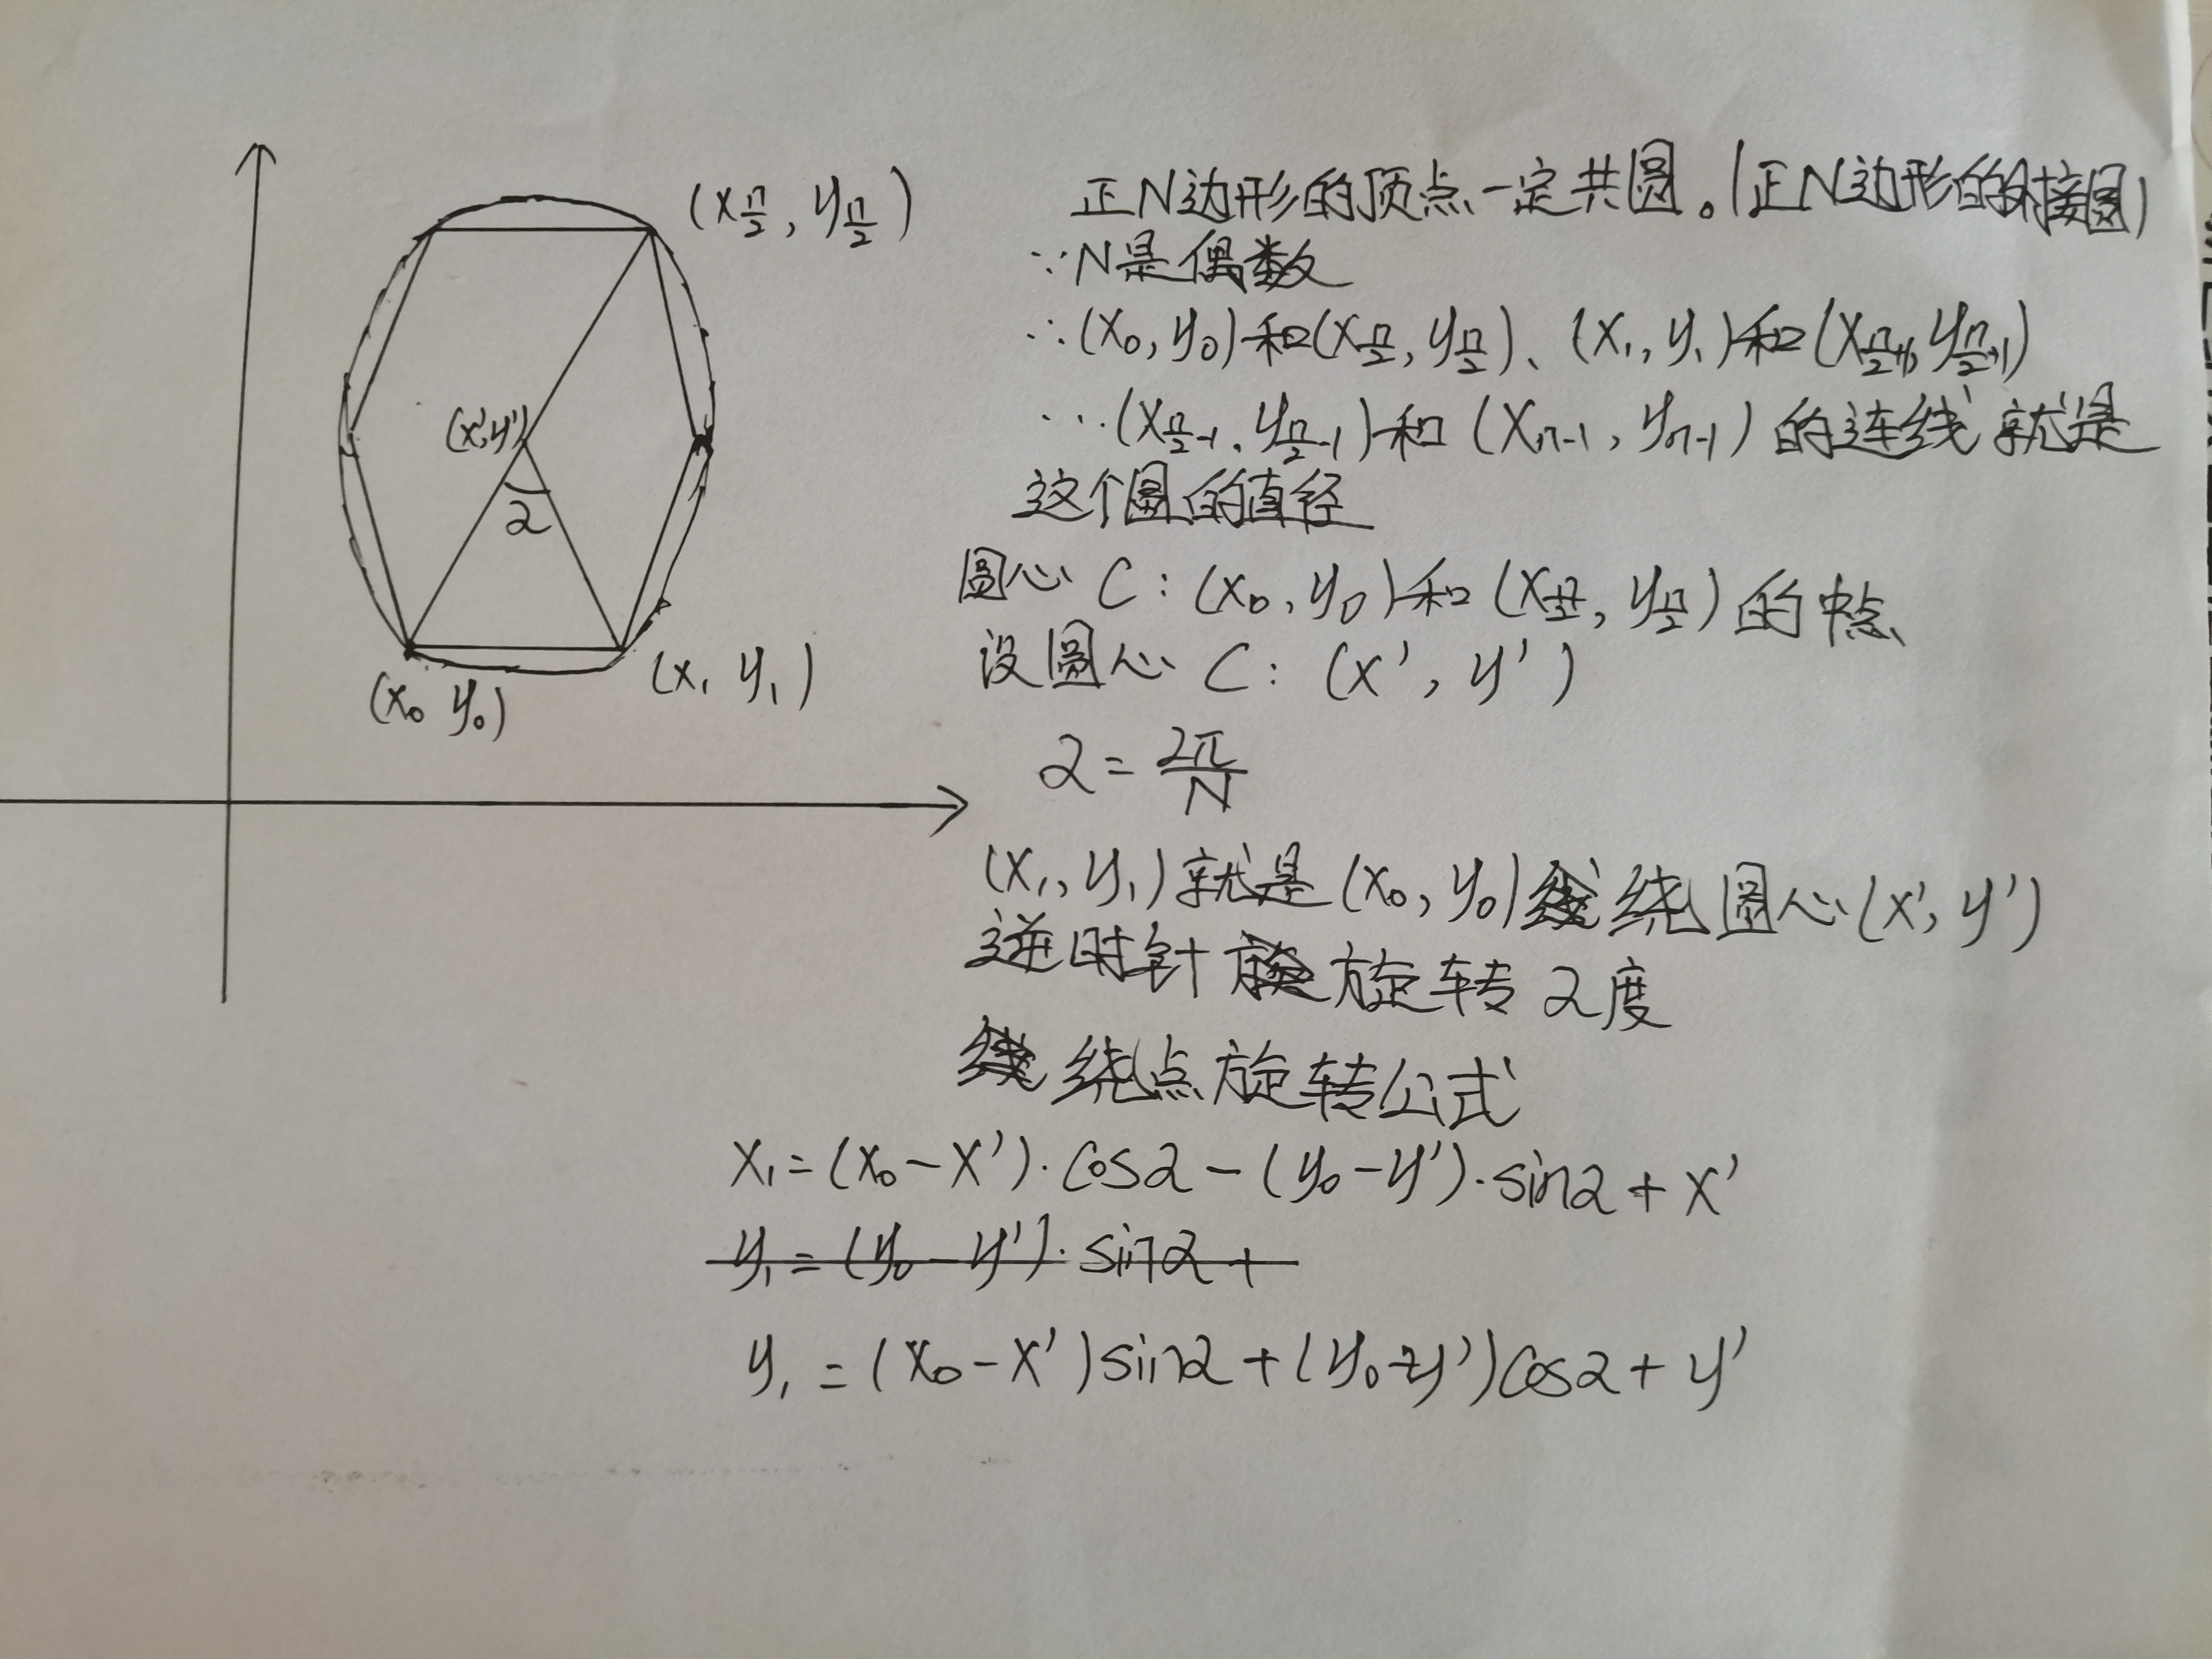 (x n/2, y n/2)
(x', y')
α
(x₀ y₀)
(x₁ y₁)
正N边形的顶点一定共圆。(正N边形的外接圆)
∵N是偶数
∴(x₀, y₀)和(x n/2, y n/2)、(x₁, y₁)和(x n/2+1, y n/2+1)
…(x n/2-1, y n/2-1)和(xn-1, yn-1)的连线就是
这个圆的直径
圆心C:(x₀, y₀)和(x n/2, y n/2)的中点
设圆心C:(x', y')
α=2π/N
(x₁, y₁)就是(x₀, y₀)绕圆心(x', y')
逆时针旋转α度
绕点旋转公式
x₁=(x₀-x')·cosα-(y₀-y')·sinα+x'
y₁=(y₀-y')·sinα+
y₁=(x₀-x')sinα+(y₀-y')cosα+y'